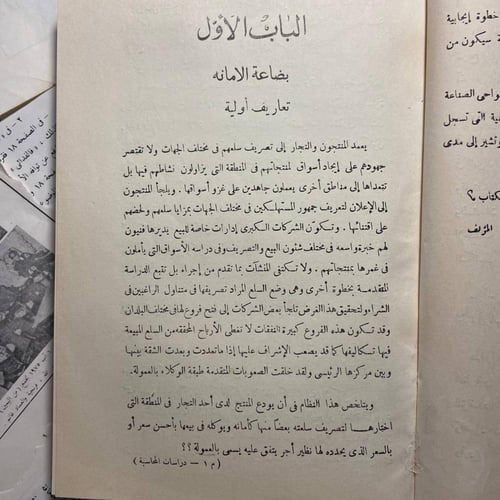 الباب الأول
بضاعة الامانه
تعاريف أولية
يعمد المنتجون والتجار إلى تصريف سلعهم فى مختلف الجهات ولا تقتصر
جهودهم على إيجاد أسواق لمنتجاتهم فى المنطقة التى يزاولون نشاطهم فيها بل
تتعداها إلى مناطق أخرى يعملون جاهدين على غزو أسواقها . ويلجأ المنتجون
إلى الإعلان لتعريف جمهور المستهلكين فى مختلف الجهات بمزايا سلعهم ولحضهم
على اقتنائها . وتسكون الشركات الكبرى إدارات خاصة للبيع يديرها فنيون
لهم خبرة واسعه فى مختلف شئون البيع والتصريف وفى دراسة الأسواق التى يأملون
فى غمرها بمنتجاتهم . ولا تسكتفى المنشآت بما تقدم من إجراء بل تتبع الدراسة
المتقدمة بخطوة أخرى وهى وضع السلع المراد تصريفها فى متناول الراغبين فى
الشراء ولتحقيق هذا الغرض تلجأ بعض الشركات إلى فتح فروع لها فى مختلف البلدان
وقد تسكون هذه الفروع كبيرة النفقات لا تغطى الأرباح المحققه من السلع المبيعة
فيها تسكاليفها كما قد يصعب الإشراف عليها إذا ما تعددت وبعدت الشقة بينها
وبين مركزها الرئيسى ولقد خلقت الصعوبات المتقدمة طبقة الوكلاء بالعمولة .
ويتلخص هذا النظام فى أن يودع المنتج لدى أحد التجار فى المنطقة التى
اختارها لتصريف سلعته بعضا منها كأمانه ويوكله فى بيعها بأحسن سعر أو
بالسعر الذى يحدده لها نظير أجر يتفق عليه يسمى بالعمولة ؟؟
( م ١ – دراسات المحاسبة )
خطوة إيجابية
ة سيكون من
واحى الصناعة
ية التى تسجل
وتشير إلى مدى
المؤلف